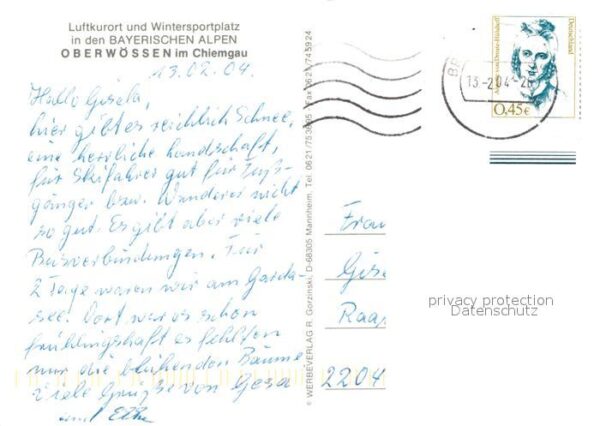 Luftkurort und Wintersportplatz
in den BAYERISCHEN ALPEN
OBERWÖSSEN im Chiemgau
13.02.04.
Hallo Gisela,
hier gibt es reichlich Schnee,
eine herrliche Landschaft,
für Skifahrer gut für Fuß-
gänger bzw. Wanderer nicht
so gut. Es gibt aber viele
Busverbindungen. Für
2 Tage waren wir am Garda-
see. Dort war es schon
frühlingshaft es fehlten
nur die blühenden Bäume
Viele Grüße von Gesa
und
© WERBEVERLAG R. Gorzinski, D-68305 Mannheim, Tel. 0621/75 36 05 Fax 0621/74 59 24
13-2 04-
Annette von Droste-Hülshoff
Deutschland
0,45€
Frau
Gise
Raa
2204
privacy protection
Datenschutz